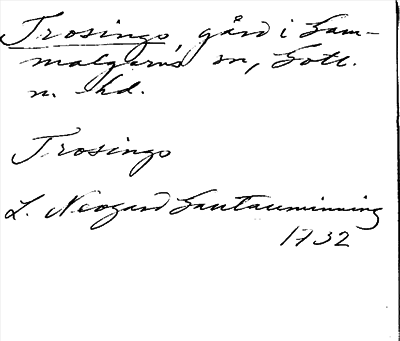 Trosings, gård i Gam-
malgarns sn, Gotl.
n. hd.
Trosings
L. Neogard Gautauminning
1732